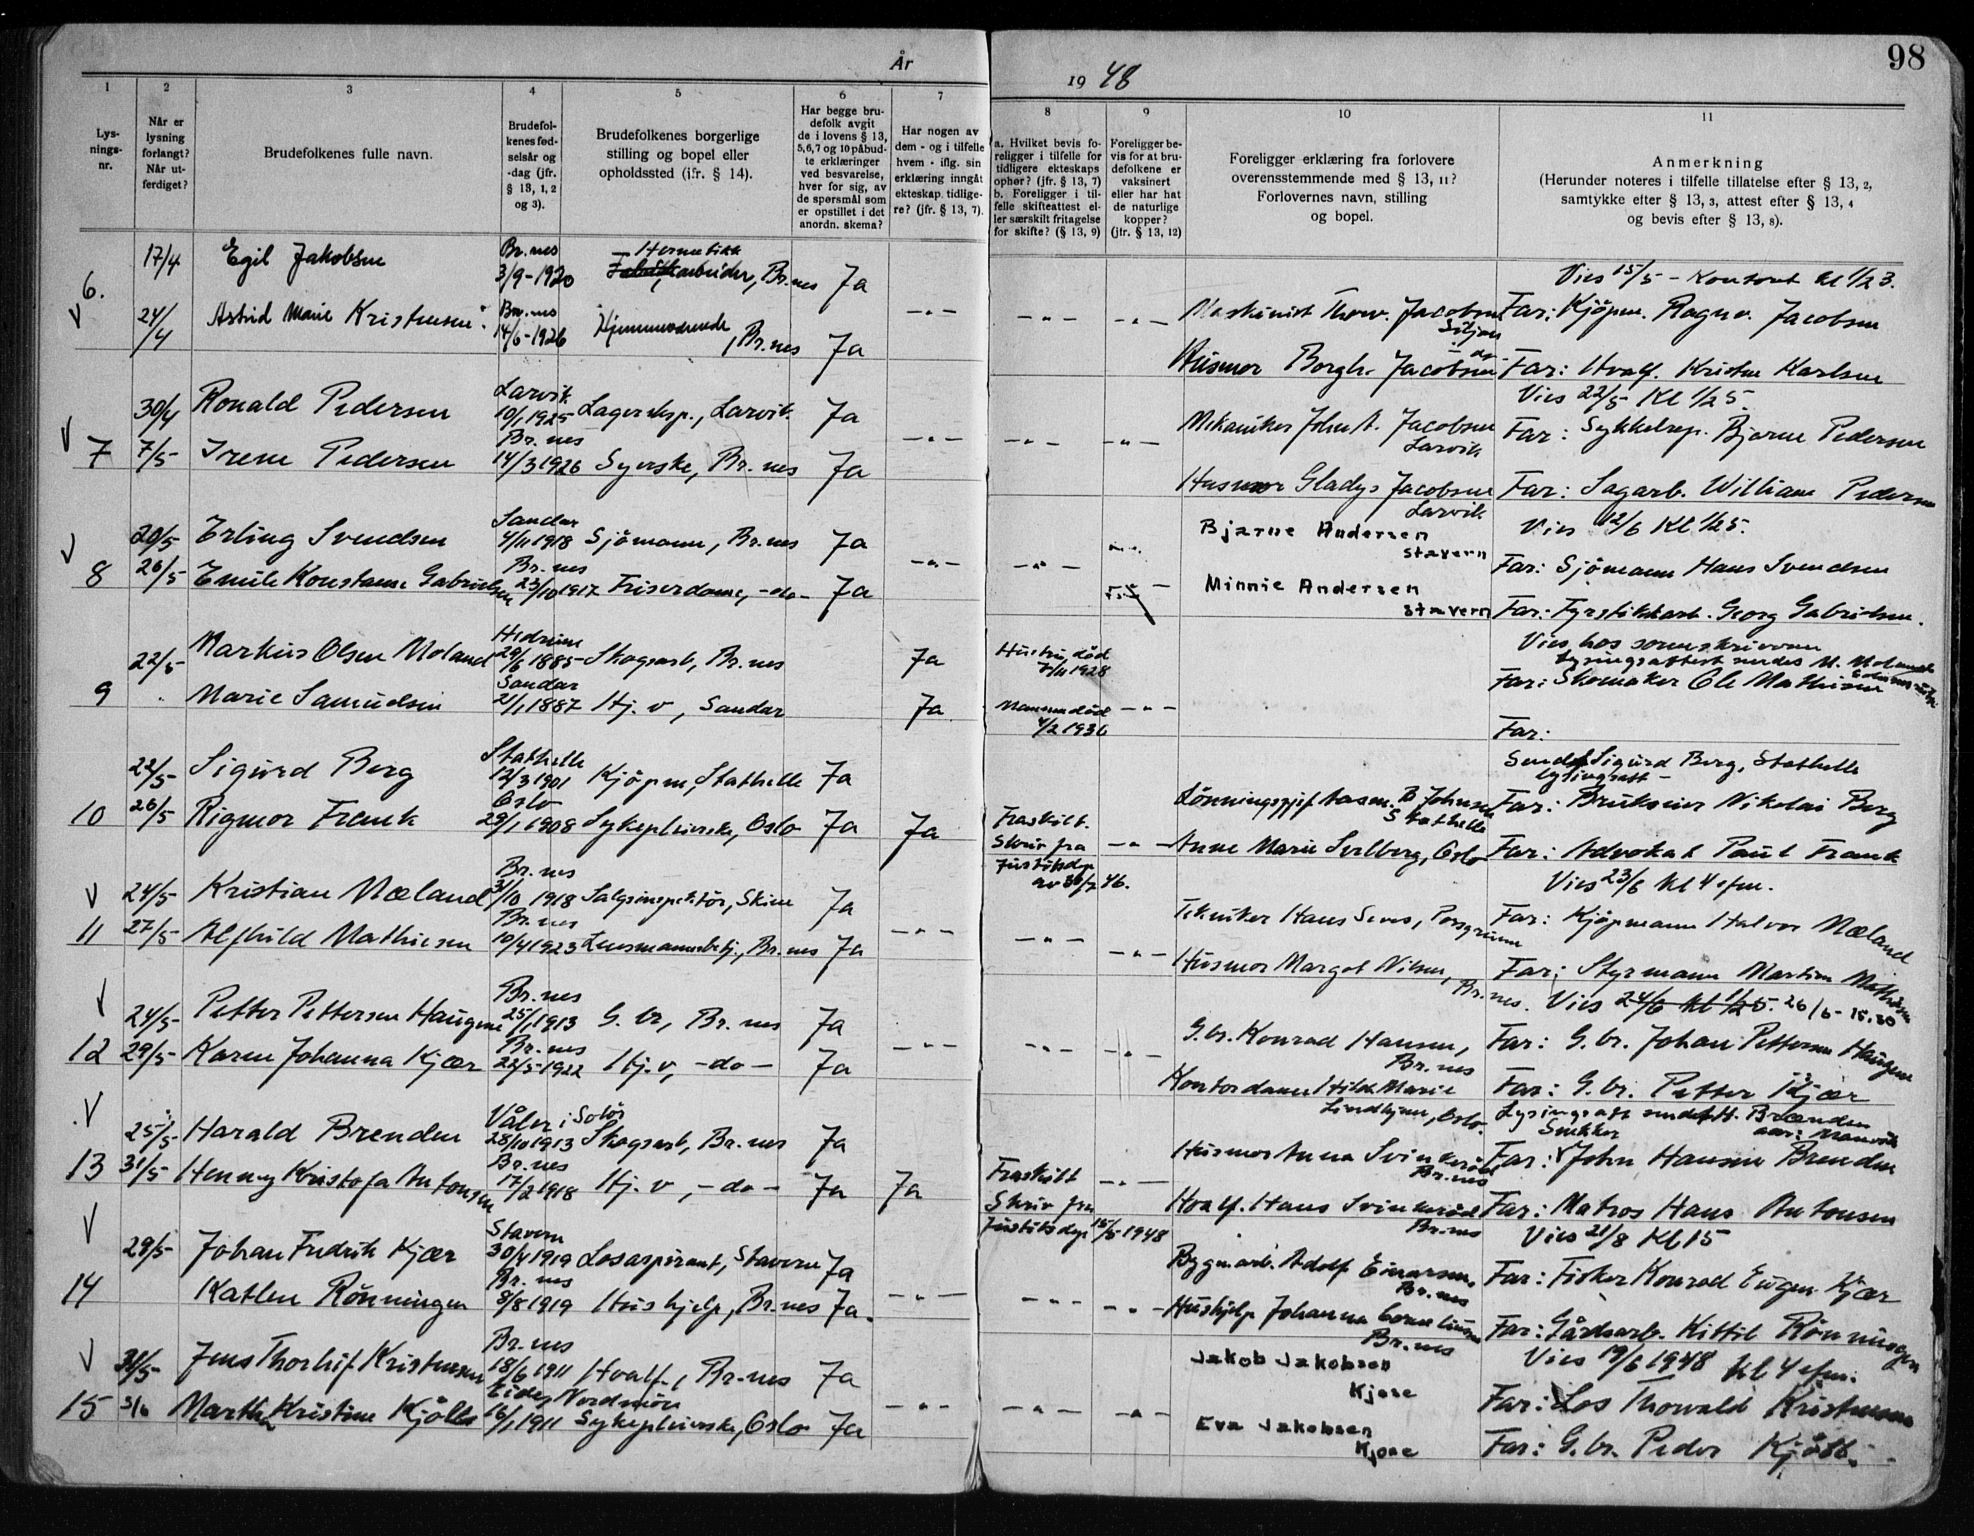 98
År 1948
1
2
3
4
5
6
7
8
9
10
11
Lys-
nings-
nr.
Når er
lysning
forlangt?
Når ut-
ferdiget?
Brudefolkenes fulle navn.
Brudefol-
kenes fød-
selsår og
-dag (jfr.
§ 13, 1, 2
og 3).
Brudefolkenes borgerlige
stilling og bopel eller
opholdssted (ifr. § 14).
Har begge bru-
defolk avgit
de i lovens § 13,
5,6,7 og 10 påbud-
te erklæringer
ved besvarelse,
hver for sig, av
de spørsmål som
er opstillet i det
anordn. skema?
Har nogen av
dem - og i tilfelle
hvem - iflg. sin
erklæring inngåt
ekteskap tidlige-
re? (jfr. § 13, 7).
a. Hvilket bevis fo-
religger i tilfelle for
tidligere ekteskaps
ophør? (jfr. § 13, 7)
b. Foreligger i til-
felle skifteattest el-
ler særskilt fritagelse
for skifte? (§ 13, 9)
Foreligger be-
vis for at bru-
defolkene er
vaksinert
eller har hat
de naturlige
kopper?
(jfr. § 13, 12)
Foreligger erklæring fra forlovere
overensstemmende med § 13, 11?
Forlovernes navn, stilling
og bopel.
Anmerkning
(Herunder noteres i tilfelle tillatelse efter § 13, 2,
samtykke efter § 13, 3, attest efter § 13, 4
og bevis efter § 13, 8).
6.
17/4 Egil Jakobsen Br.nes 3/9-1920 Hermetikkarbeider, Br.nes Ja
Vies 15/5 - Kontoret kl 1/2 3.
24/4 Astrid Marie Kristensen Br.nes 14/6-1926 Hjemmeværende, Br.nes Ja
Maskinist Thorv. Jacobsen
Far: Kjøpm. Ragnv. Jacobsen
Husmor Borgh. Jacobsen
Far: Hvalf. Kristen Karlsen
7
30/4 Ronald Pedersen Larvik 10/1 1925 Lagereksp., Larvik. Ja
Vies 22/5 Kl 1/2 5.
Mekaniker John A. Jacobsen Larvik
Far: Sykkelrep. Bjarne Pedersen
7/5 Irene Pedersen Br.nes 14/3 1926 Syerske, Br.nes Ja
Husmor Gladys Jacobsen Larvik
Far: Sagarb. William Pedersen
8
20/5 Erling Svendsen Sandar 4/11 1918 Sjömann, Br.nes Ja
Bjarne Andersen Stavern
Vies 12/6 Kl 1/2 5.
Far: Sjömann Hans Svendsen
26/5 Emilie Konstanse Gabrielsen Br.nes 23/10 1917 Friserdame, -do- Ja
Minnie Andersen Stavern
Far: Fyrstikkarb. Georg Gabrielsen.
9
22/5 Markus Olsen Moland 29/6 1885 Skogsarb, Br.nes Ja
Hustru död 7/11 1928
Vies hos sorenskriveren
Lysingsattest sendes M. Moland
Far: Skomaker Ole Mathisen
Marie Samuelsen Sandar 2/1 1887 Hj. v, Sandar Ja
Mannen död 4/2 1936
Far:
10
22/5 Sigurd Berg Stathelle 12/3 1901 Kjöpm, Stathelle Ja
Sendt Sigurd Berg, Stathelle lysingsatt -
Far: Brukseier Nikolai Berg
26/5 Rigmor Frank Oslo 29/1 1908 Sykepleierske, Oslo Ja Ja
Fraskilt. Skriv fra Justitsdep
Anne Marie Selberg, Oslo
Far: Advokat Paul Frank
11
24/5 Kristian Mæland Br.nes 31/10 1918 Salgsinspektör, Skien Ja
Vies 23/6 kl 4 efm.
Tekniker Hans Sens, Porsgrunn
Far: Kjöpmann Halvor Mæland
27/5 Alfhild Mathisen Br.nes 10/4 1923 Lensmannsbetj., Br.nes Ja
Husmor Margot Nilsen, Br.nes.
Far: Styrmann Martin Mathisen
12
24/5 Petter Pettersen Haugene Br.nes 25/1 1913 G. br, Br. nes Ja
Vies 24/6 kl 1/2 5. 26/6 - 15.30
G. br. Konrad Hansen, Br.nes
Far: G. br. Johan Pettersen Haugene
29/5 Karen Johanna Kjær Br.nes 22/5-1922 Hj. v, -do- Ja
Kontordame Hilda Marie Lindhjem, Oslo.
Far: G. br. Petter Kjær
13
25/5 Harald Brenden Våler i Solör 28/10 1913 Skogsarb, Br.nes Ja
Lysingsatt sendt H. Brænden
Husmor Anna Svinkeröd Br.nes
Far: Snekker John Hansen Brenden
31/5 Henny Kristofa Antonsen Br.nes 17/2 1918 Hj. v, -do- Ja Ja
Fraskilt Skriv fra Justitsdep 15/5 1948
Hvalf. Hans Svinkeröd Br.nes
Far: Matros Hans Antonsen
14
29/5 Johan Fredrik Kjær Stavern 30/4 1919 Losaspirant, Stavern Ja
Vies 21/8 Kl 15
Bygn.arb. Adolf Einarsen, Br.nes
Far: Fisker Konrad Eugen Kjær
Katlen Rönningen Br.nes 8/8 1919 Hushjelp, Br.nes Ja.
Hushjelp Johanna Corneliusen Br.nes
Far: Gårdsarb. Kittil Rönningen
15
31/5 Jens Thorleif Kristensen Br.nes 18/6 1911 Hvalf., Br.nes Ja
Vies 19/6 1948 kl 4 efm.
Jakob Jakobsen Kjose
Far: Los Thorvald Kristensen
3/6 Marthe Kristine Kjölls Eide, Nordmöre 16/1 1911 Sykepleierske, Oslo Ja
Eva Jakobsen Kjose
Far: G. br. Peder Kjöll.